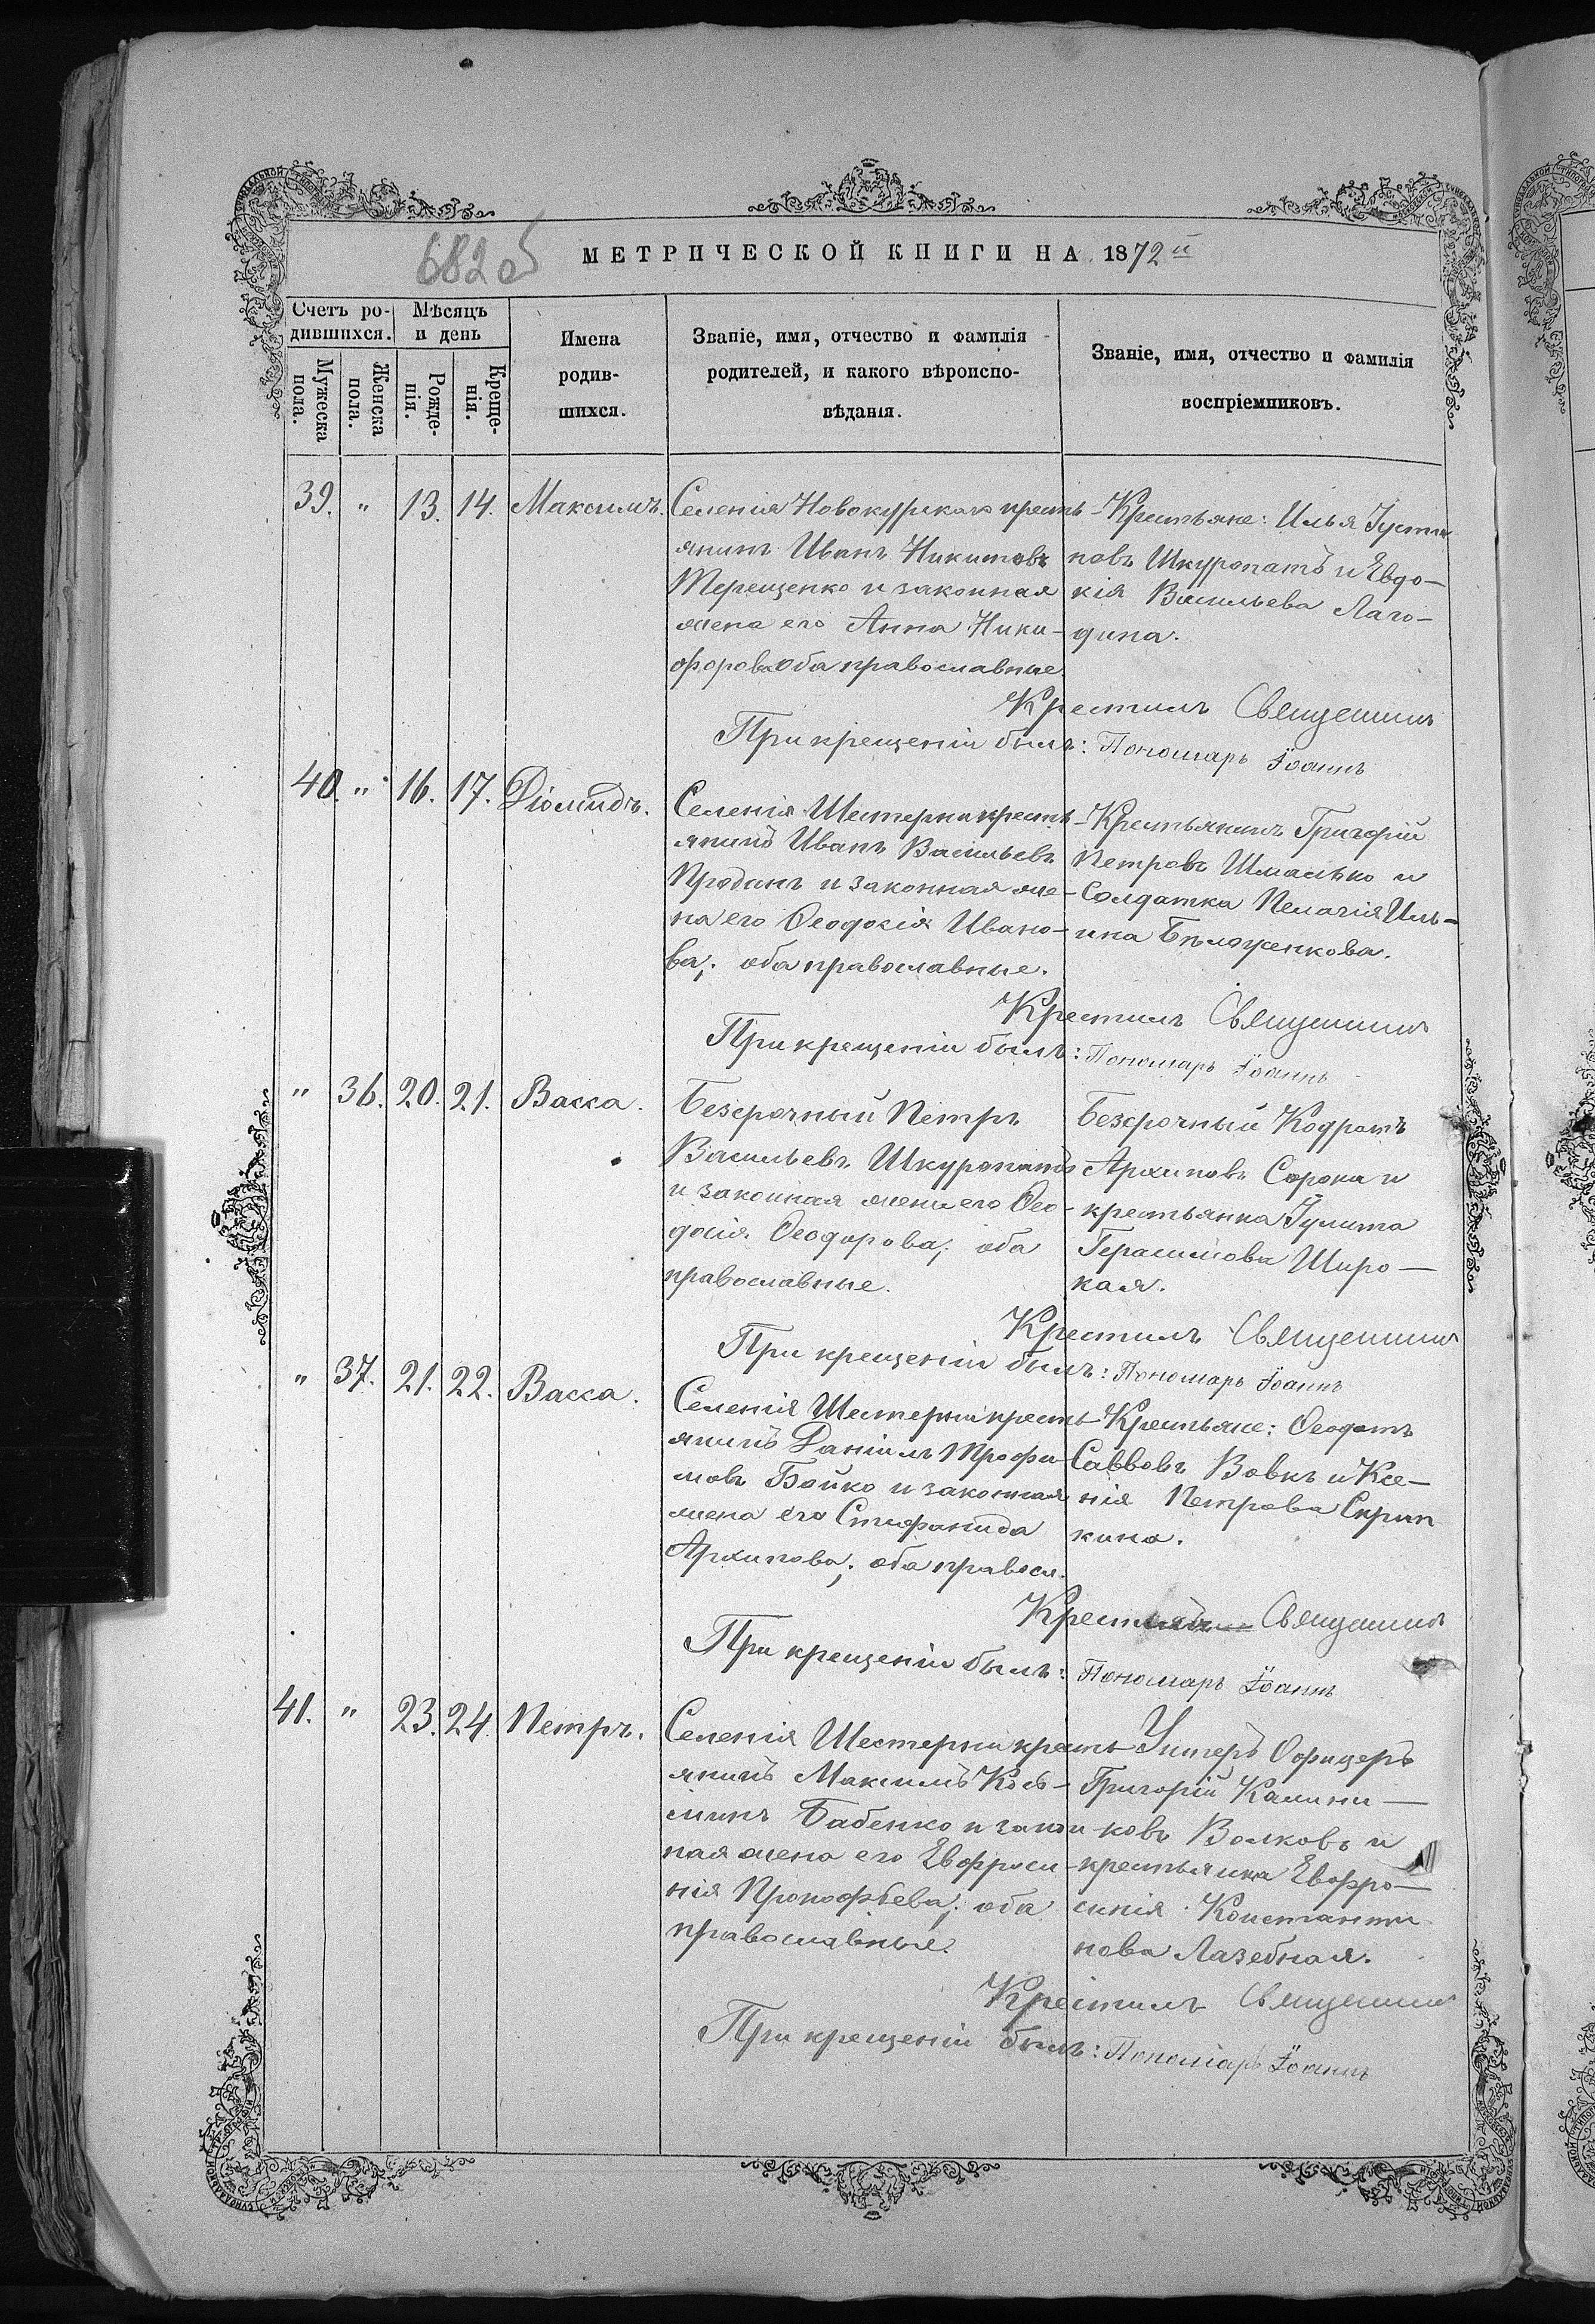 682об
МЕТРИЧЕСКОЙ КНИГИ НА 1872й
Счетъ ро-
дившихся.
Мѣсяцъ
и день
Мужеска
пола.
Женска
пола.
Рожде-
нія.
Креще-
нія.
Имена
родив-
шихся.
Званіе, имя, отчество и фамилія
родителей, и какого вѣроиспо-
вѣданія.
Званіе, имя, отчество и фамилія
воспріемниковъ.
39. " 13. 14. Максимъ.
Селенія Новокурскаго кресть-
янинъ Иванъ Никитовъ
Терещенко и законная
жена его Анна Ники-
форова оба православные.
Крестьяне: Илья Густи
новъ Шкуропатъ и Евдо-
кія Васильева Лаго-
дина.
Крестилъ Священникъ
При крещеніи былъ: Пономарь Іоаннъ
40. " 16. 17. Діомидъ.
Селенія Шестерни кресть-
янинъ Иванъ Васильевъ
Проданъ и законная же-
на его Ѳеодосія Ивано-
ва; оба православные.
Крестьянинъ Григорій
Петровъ Шмалько и
Солдатка Пелагія Иль-
ина Бѣложенкова.
Крестилъ Священникъ
При крещеніи былъ: Пономарь Іоаннъ
" 36. 20. 21. Васса.
Безсрочный Петръ
Васильевъ Шкуропатъ
и законная жена его Ѳео-
досія Ѳеодорова; оба
православные.
Безсрочный Кодратъ
Архиповъ Сорока и
крестьянка Іулита
Герасимова Широ-
кая.
Крестилъ Священникъ
При крещеніи былъ: Пономарь Іоаннъ
" 37. 21. 22. Васса.
Селенія Шестерни кресть-
янинъ Даніилъ Трофи-
мовъ Бойко и законная
жена его Стефанида
Архипова; оба правосл.
Крестьяне: Ѳеодотъ
Саввовъ Вовкъ и Ксе-
нія Петрова Скрип
кина.
Крестилъ Священникъ
При крещеніи былъ: Пономарь Іоаннъ
41. " 23. 24. Петръ.
Селенія Шестерни кресть
янинъ Максимъ Козь-
минъ Бабенко и закон
ная жена его Евфроси-
нія Прокофьева; оба
православные.
Унтеръ Офицеръ
Григорій Калини-
ковъ Волковъ и
крестьянка Евфро-
синія Константи
нова Лазебная.
Крестилъ Священникъ
При крещеніи былъ: Пономарь Іоаннъ